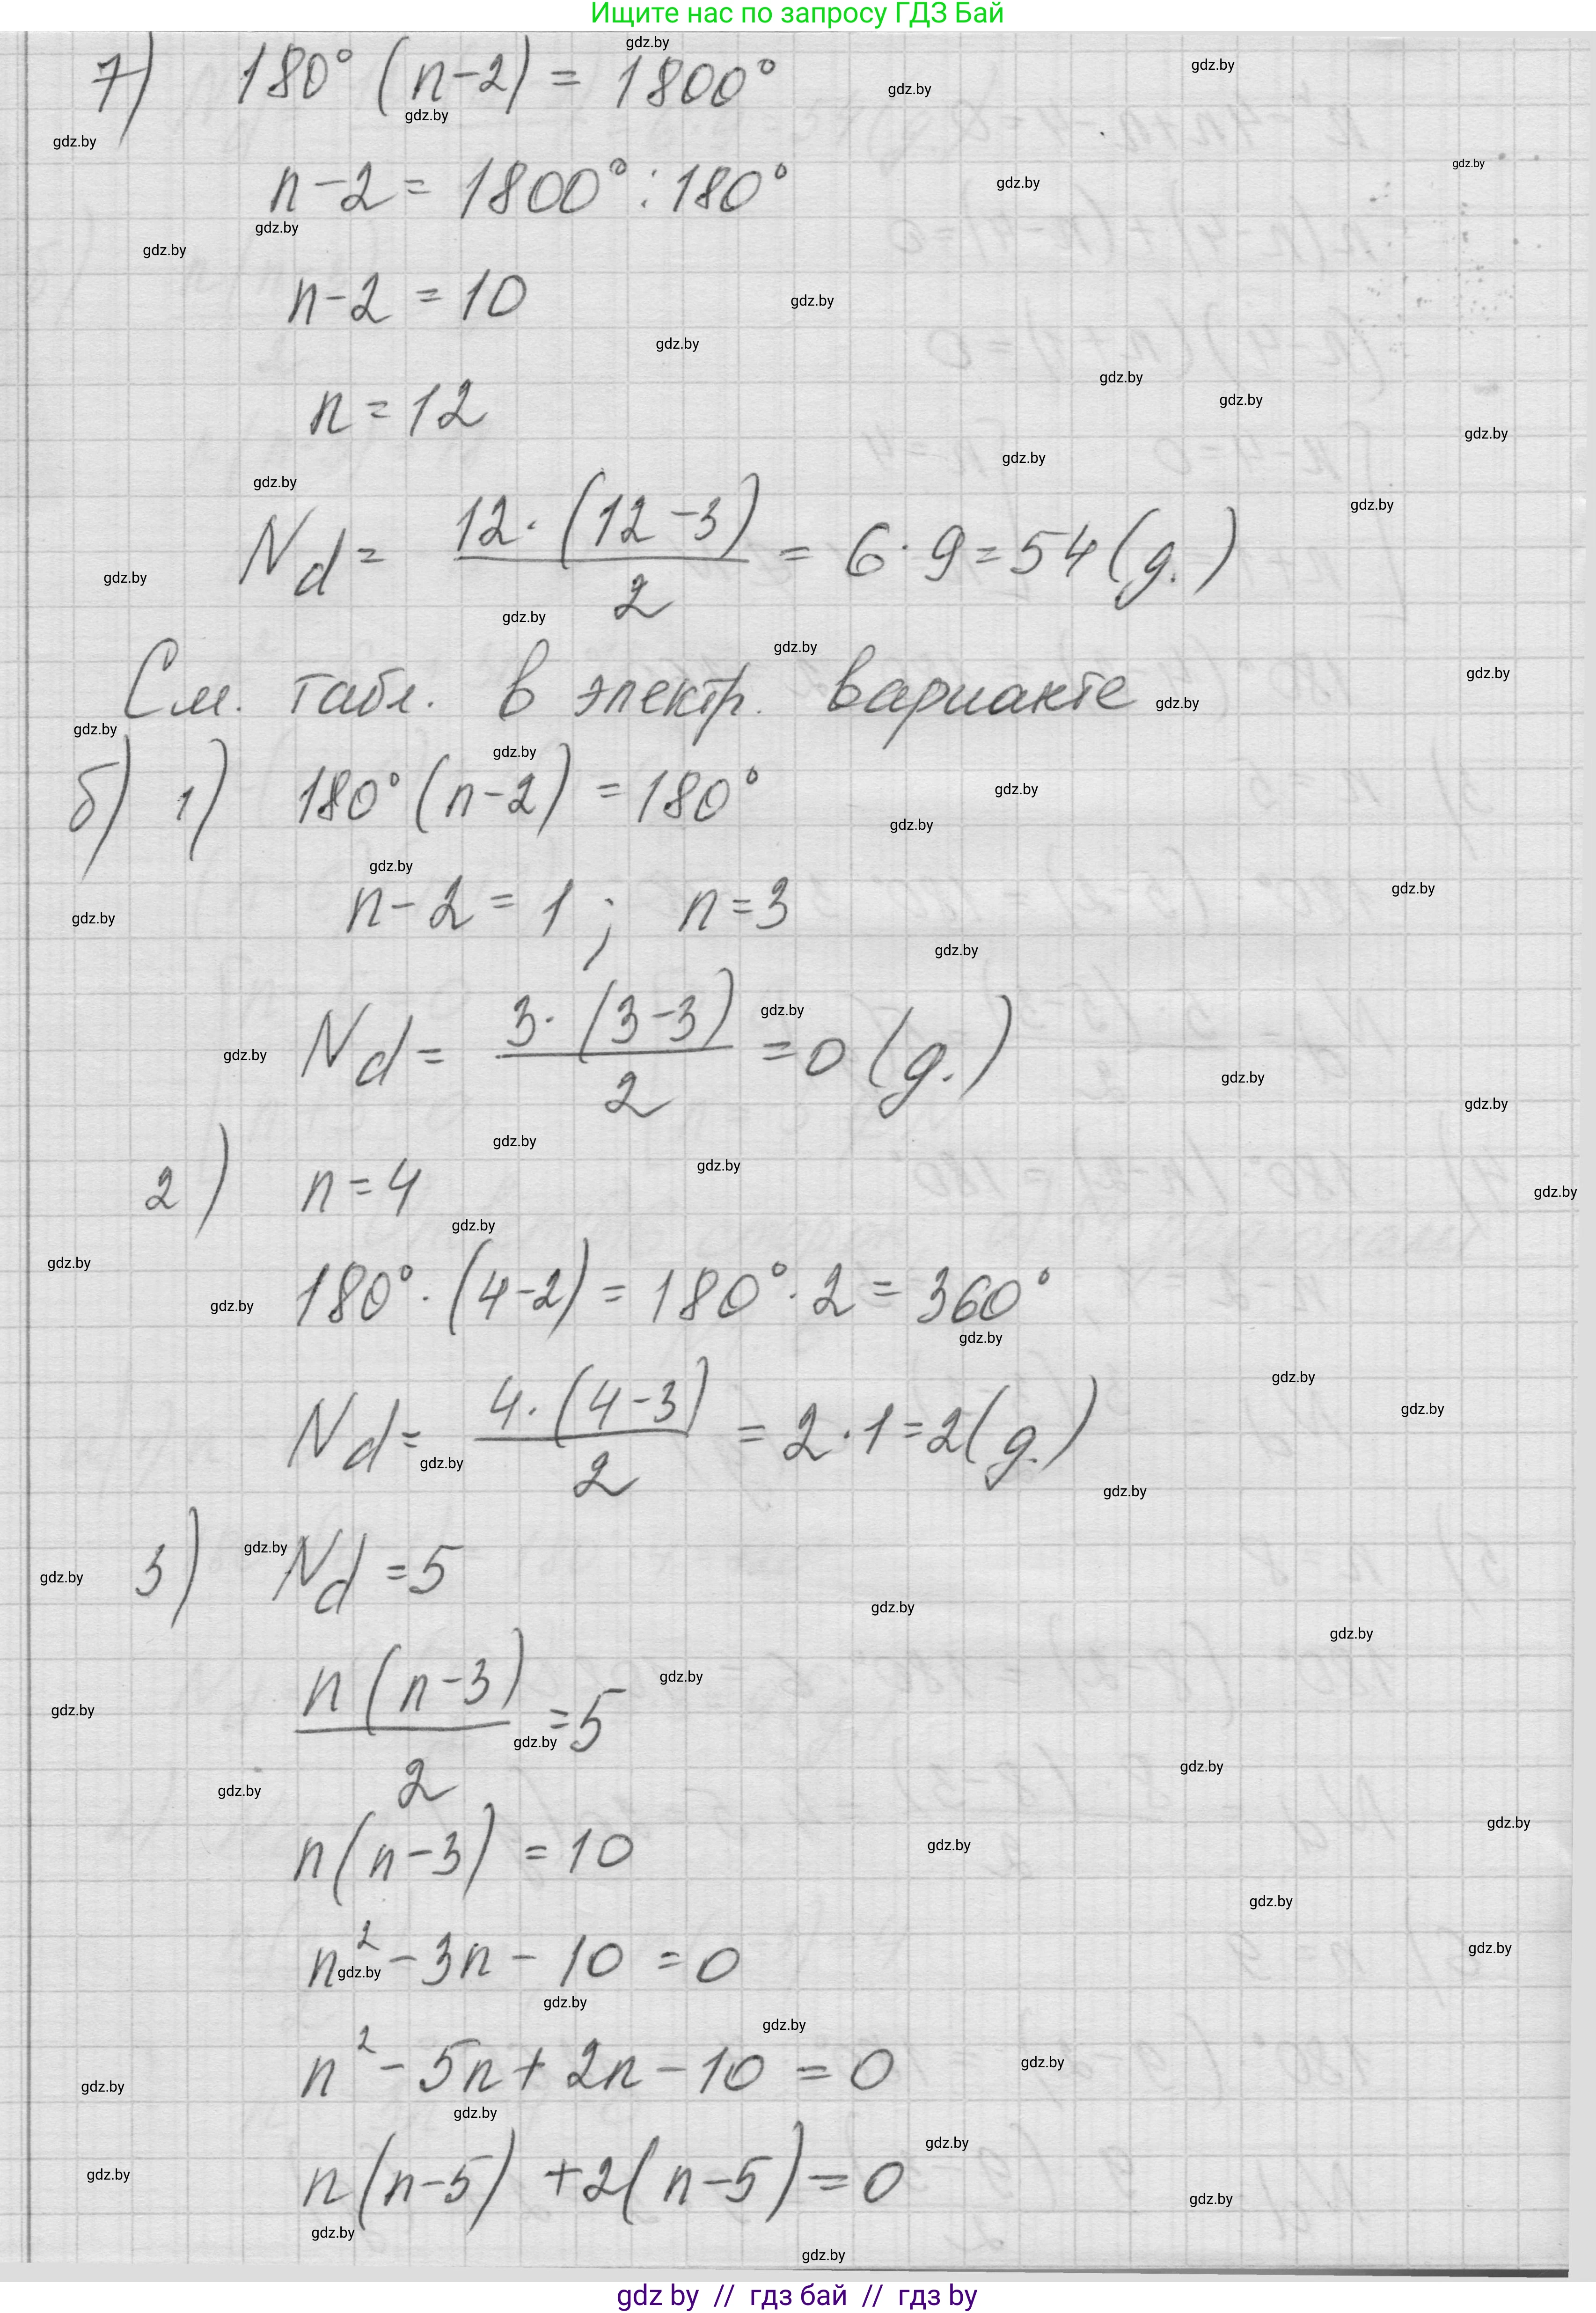 Ищите нас по запросу ГДЗ Бай
7) 180° (n-2) = 1800°
n-2 = 1800° : 180°
n-2 = 10
n = 12
Nd = 12·(12-3)/2 = 6·9 = 54 (g.)
См. табл. в электр. варианте
б) 1) 180° (n-2) = 180°
n-2 = 1 ; n = 3
Nd = 3·(3-3)/2 = 0 (g.)
2) n = 4
180° · (4-2) = 180° · 2 = 360°
Nd = 4·(4-3)/2 = 2·1 = 2 (g.)
3) Nd = 5
n(n-3)/2 = 5
n(n-3) = 10
n² - 3n - 10 = 0
n² - 5n + 2n - 10 = 0
n(n-5) + 2(n-5) = 0
gdz by // гдз бай // гдз by